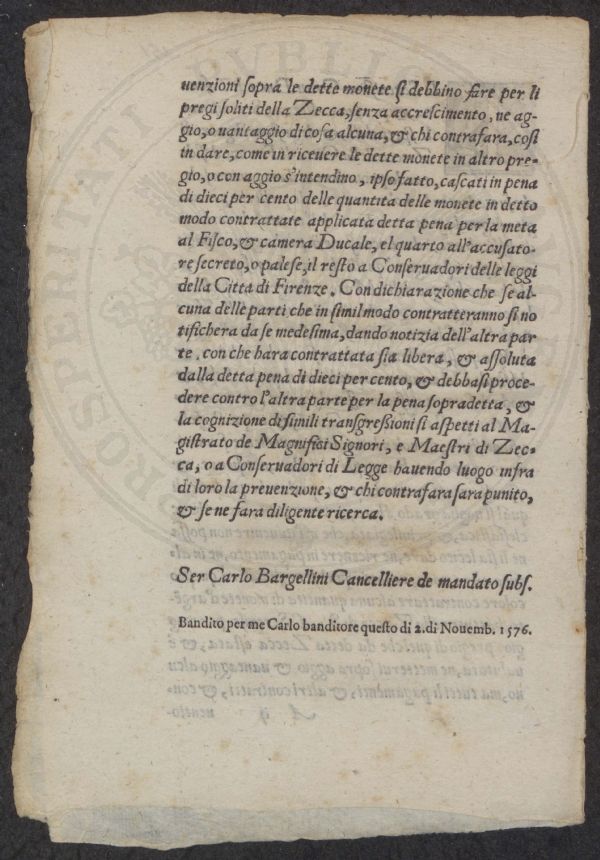 uenzioni sopra le dette monete si debbino fare per li
pregi soliti della Zecca, senza accrescimento, ne ag-
gio, o uantaggio di cosa alcuna, & chi contrafara, cosi
in dare, come in riceuere le dette monete in altro pre-
gio, o con aggio s'intendino, ipso fatto, cascati in pena
di dieci per cento delle quantita delle monete in detto
modo contrattate applicata detta pena per la meta
al Fisco, & camera Ducale, el quarto all'accusato-
re secreto, o palese, il resto a Conseruadori delle leggi
della Citta di Firenze. Con dichiarazione che se al-
cuna delle parti che in simil modo contratteranno si no
tifichera da se medesima, dando notizia dell'altra par
te, con che hara contrattata sia libera, & assoluta
dalla detta pena di dieci per cento, & debbasi proce-
dere contro l'altra parte per la pena sopradetta, &
la cognizione di simili transgressioni si aspetti al Ma-
gistrato de Magnifici Signori, e Maestri di Zec-
ca, o a Conseruadori di Legge hauendo luogo infra
di loro la preuenzione, & chi contrafara sara punito,
& se ne fara diligente ricerca.
Ser Carlo Bargellini Cancelliere de mandato subs.
Bandito per me Carlo banditore questo di 2. di Nouemb. 1576.